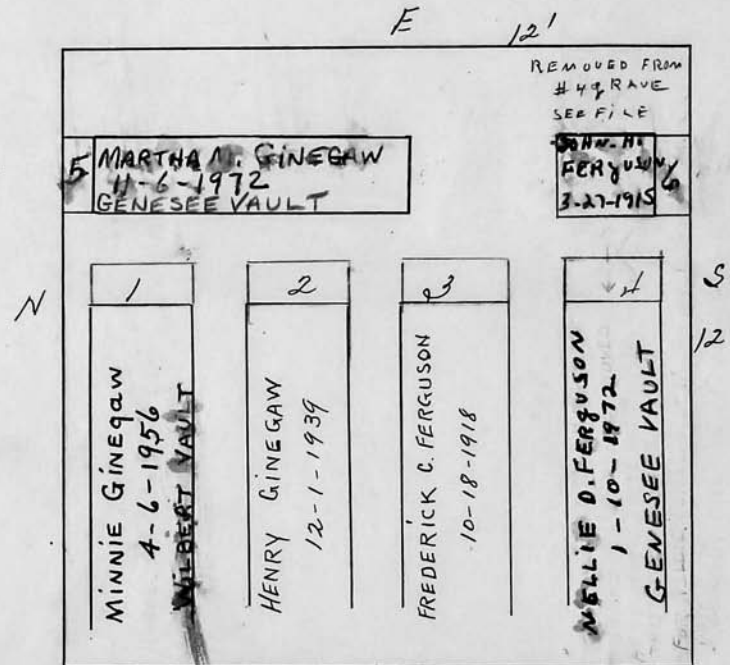 E 12'
REMOVED FROM
#4 GRAVE
SEE FILE
5 MARTHA M. GINEGAW
11-6-1972
GENESEE VAULT
JOHN. H.
FERGUSON 6
3-27-1915
N
1
2
3
4
S
12
MINNIE GINEGAW
4-6-1956
WILBERT VAULT
HENRY GINEGAW
12-1-1939
FREDERICK C. FERGUSON
10-18-1918
NELLIE D. FERGUSON
1-10-1972
GENESEE VAULT